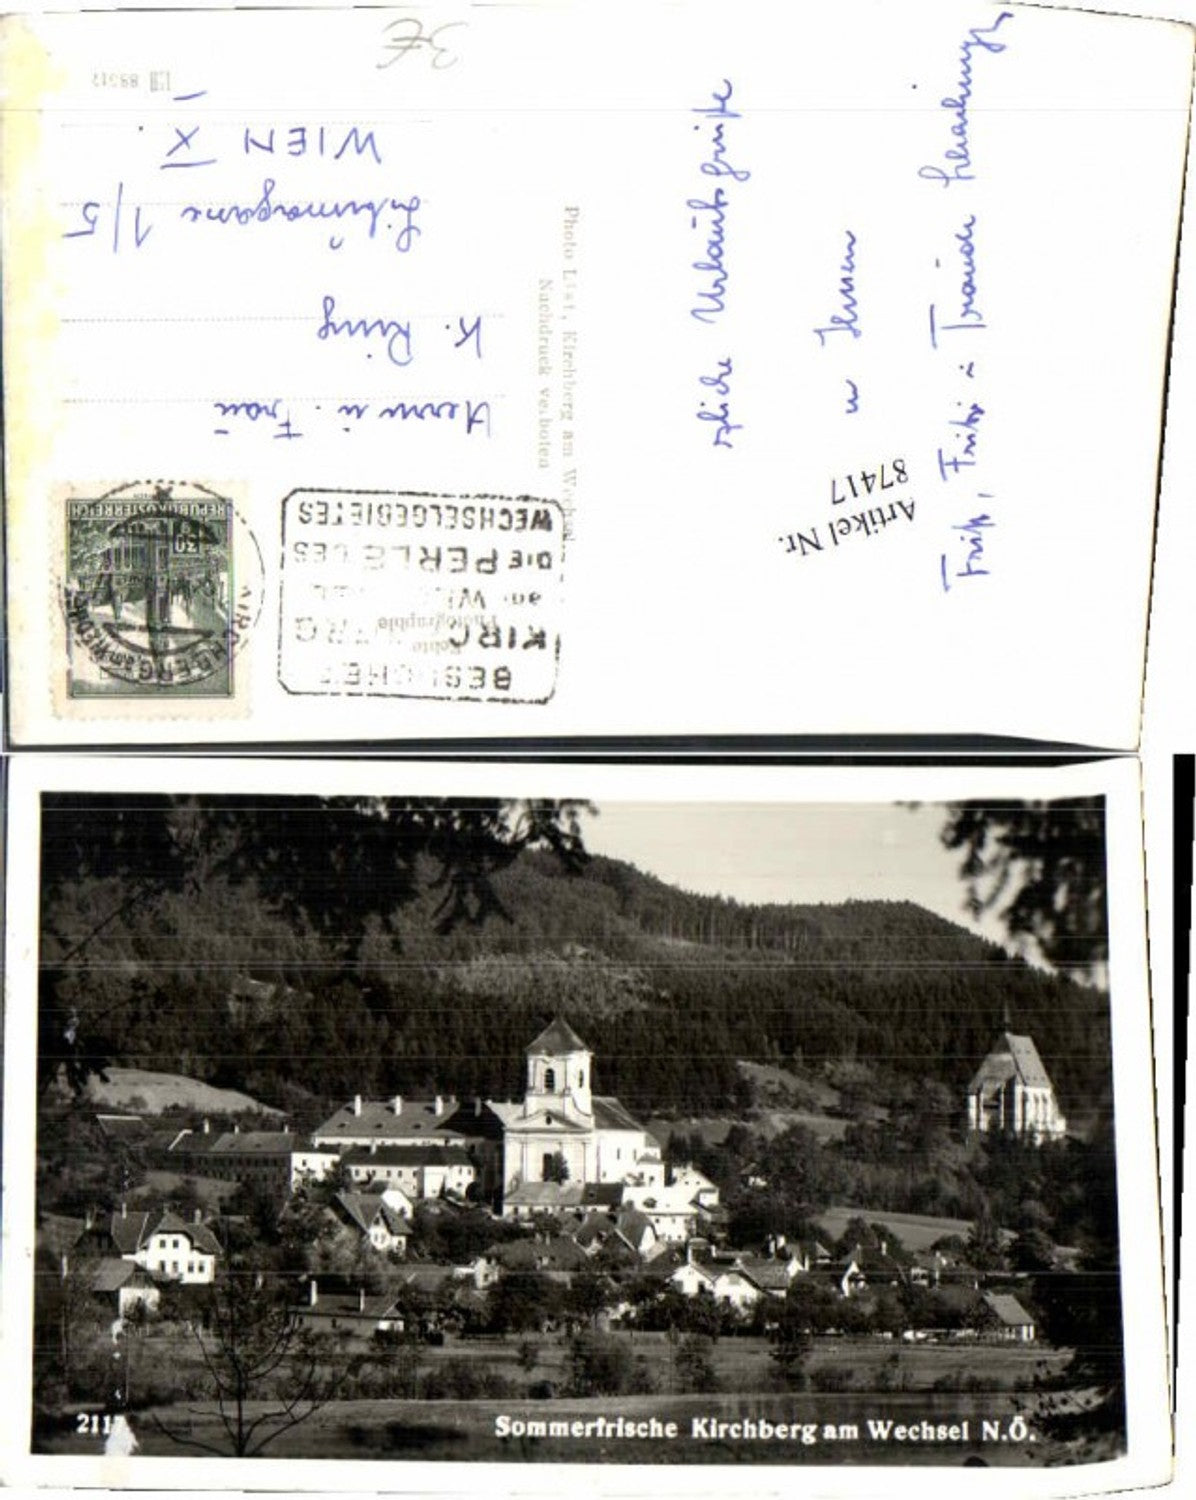 3€
88512
Herrn u. Frau
K. Ring
1/5
WIEN X
Photo List, Kirchberg am Wechsel
Nachdruck verboten
Urlaubsgrüße
Ihnen
Artikel Nr.
87417
REPUBLIK ÖSTERREICH
30
KIRCHBERG am WECHSEL
BESUCHET
KIRCHBERG
am WECHSEL
DIE PERLE DES
WECHSELGEBIETES
Echte
Photographie
2117
Sommerfrische Kirchberg am Wechsel N.Ö.